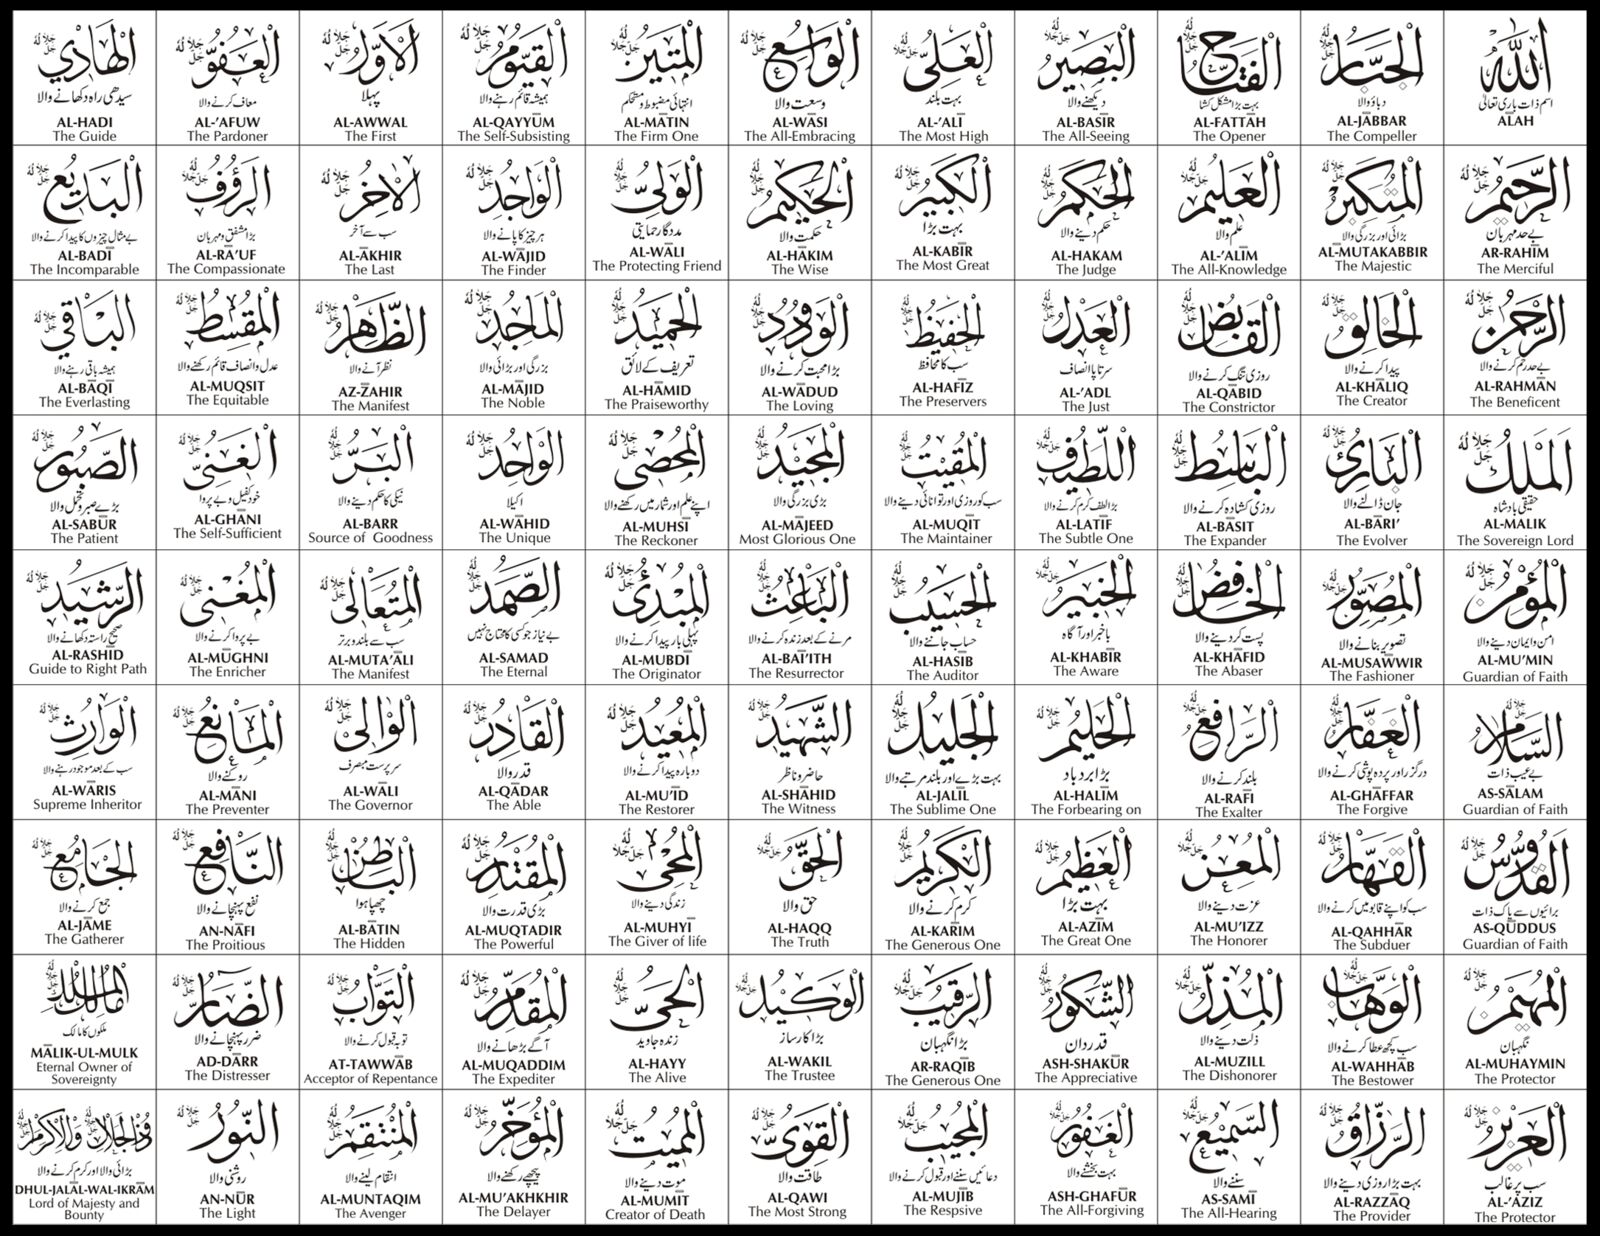 الله
اسم ذات باری تعالیٰ
ALAH
الجبار جل جلاله
دباؤ والا
AL-JABBAR
The Compeller
الفتاح جل جلاله
بہت بڑا مشکل کشا
AL-FATTĀH
The Opener
البصير جل جلاله
دیکھنے والا
AL-BASĪR
The All-Seeing
العلي جل جلاله
بہت بلند
AL-'ALĪ
The Most High
الواسع جل جلاله
وسعت والا
AL-WĀSI
The All-Embracing
المتين جل جلاله
انتہائی مضبوط و مستحکم
AL-MĀTIN
The Firm One
القيوم جل جلاله
ہمیشہ قائم رہنے والا
AL-QAYYŪM
The Self-Subsisting
الاول جل جلاله
پہلا
AL-AWWAL
The First
العفو جل جلاله
معاف کرنے والا
AL-'AFUW
The Pardoner
الهادي جل جلاله
سیدھی راہ دکھانے والا
AL-HADI
The Guide
الرحيم جل جلاله
بے حد مہربان
AR-RAHĪM
The Merciful
المتكبر جل جلاله
بڑائی اور بزرگی والا
AL-MUTAKABBIR
The Majestic
العليم جل جلاله
علم والا
AL-'ALĪM
The All-Knowledge
الحكم جل جلاله
حکم دینے والا
AL-HAKAM
The Judge
الكبير جل جلاله
بہت بڑا
AL-KABĪR
The Most Great
الحكيم جل جلاله
حکمت والا
AL-HĀKIM
The Wise
الولي جل جلاله
مددگار حمایتی
AL-WĀLI
The Protecting Friend
الواجد جل جلاله
ہر چیز کا پانے والا
AL-WĀJID
The Finder
الآخر جل جلاله
سب سے آخر
AL-ĀKHIR
The Last
الرؤف جل جلاله
بڑا مشفق و مہربان
AL-RA'UF
The Compassionate
البديع جل جلاله
بے مثال چیزوں کا پیدا کرنے والا
AL-BADĪ
The Incomparable
الرحمن جل جلاله
بے حد رحم کرنے والا
AL-RAHMĀN
The Beneficent
الخالق جل جلاله
پیدا کرنے والا
AL-KHĀLIQ
The Creator
القابض جل جلاله
روزی تنگ کرنے والا
AL-QĀBID
The Constrictor
العدل جل جلاله
سرتاپا انصاف
AL-'ADL
The Just
الحفيظ جل جلاله
سب کا محافظ
AL-HAFĪZ
The Preservers
الودود جل جلاله
بڑا محبت کرنے والا
AL-WĀDUD
The Loving
الحميد جل جلاله
تعریف کے لائق
AL-HĀMID
The Praiseworthy
الماجد جل جلاله
بزرگی اور بڑائی والا
AL-MĀJID
The Noble
الظاهر جل جلاله
نظر آنے والا
AZ-ZĀHIR
The Manifest
المقسط جل جلاله
عدل و انصاف قائم رکھنے والا
AL-MUQSIT
The Equitable
الباقي جل جلاله
ہمیشہ باقی رہنے والا
AL-BĀQĪ
The Everlasting
الملك جل جلاله
حقیقی بادشاہ
AL-MALIK
The Sovereign Lord
البارئ جل جلاله
جان ڈالنے والا
AL-BĀRI'
The Evolver
الباسط جل جلاله
روزی کشادہ کرنے والا
AL-BĀSIT
The Expander
اللطيف جل جلاله
بڑا لطف کرم کرنے والا
AL-LATĪF
The Subtle One
المقيت جل جلاله
سب کو روزی اور توانائی دینے والا
AL-MUQĪT
The Maintainer
المجيد جل جلاله
بڑی بزرگی والا
AL-MĀJEED
Most Glorious One
المحصي جل جلاله
اپنے علم اور شمار میں رکھنے والا
AL-MUHSĪ
The Reckoner
الواحد جل جلاله
اکیلا
AL-WĀHID
The Unique
البر جل جلاله
نیکی کا حکم دینے والا
AL-BARR
Source of Goodness
الغني جل جلاله
خود کفیل و بے پروا
AL-GHĀNI
The Self-Sufficient
الصبور جل جلاله
بڑے صبر و تحمل والا
AL-SABŪR
The Patient
المؤمن جل جلاله
امن و ایمان دینے والا
AL-MU'MIN
Guardian of Faith
المصور جل جلاله
تصویر بنانے والا
AL-MUSAWWIR
The Fashioner
الخافض جل جلاله
پست کر دینے والا
AL-KHĀFID
The Abaser
الخبير جل جلاله
باخبر اور آگاہ
AL-KHABĪR
The Aware
الحسيب جل جلاله
حساب جاننے والا
AL-HASĪB
The Auditor
الباعث جل جلاله
مرنے کے بعد زندہ کرنے والا
AL-BAĪ'ITH
The Resurrector
المبدئ جل جلاله
پہلی بار پیدا کرنے والا
AL-MUBDĪ
The Originator
الصمد جل جلاله
بے نیاز جو کسی کا محتاج نہیں
AL-SAMAD
The Eternal
المتعالي جل جلاله
سب سے بلند و برتر
AL-MUTA'ĀLI
The Manifest
المغني جل جلاله
بے پروا کرنے والا
AL-MŪGHNI
The Enricher
الرشيد جل جلاله
صحیح راستہ دکھانے والا
AL-RASHĪD
Guide to Right Path
السلام جل جلاله
بے عیب ذات
AS-SĀLAM
Guardian of Faith
الغفار جل جلاله
درگزر اور پردہ پوشی کرنے والا
AL-GHĀFFAR
The Forgive
الرافع جل جلاله
بلند کرنے والا
AL-RAFĪ
The Exalter
الحليم جل جلاله
بڑا بردباد
AL-HALĪM
The Forbearing on
الجليل جل جلاله
بہت بڑے اور بلند مرتبے والا
AL-JALĪL
The Sublime One
الشهيد جل جلاله
حاضر و ناظر
AL-SHĀHID
The Witness
المعيد جل جلاله
دوبارہ پیدا کرنے والا
AL-MU'ĪD
The Restorer
القادر جل جلاله
قدر والا
AL-QĀDAR
The Able
الوالي جل جلاله
سرپرست متصرف
AL-WĀLI
The Governor
المانع جل جلاله
روکنے والا
AL-MĀNI
The Preventer
الوارث جل جلاله
سب کے بعد موجود رہنے والا
AL-WĀRIS
Supreme Inheritor
القدوس جل جلاله
برائیوں سے پاک ذات
AS-QŪDDUS
Guardian of Faith
القهار جل جلاله
سب کو اپنے قابو میں کرنے والا
AL-QAHHĀR
The Subduer
المعز جل جلاله
عزت دینے والا
AL-MU'IZZ
The Honorer
العظيم جل جلاله
بہت بڑا
AL-AZĪM
The Great One
الكريم جل جلاله
کرم کرنے والا
AL-KARĪM
The Generous One
الحق جل جلاله
حق والا
AL-HAQQ
The Truth
المحيي جل جلاله
زندگی دینے والا
AL-MUHYĪ
The Giver of life
المقتدر جل جلاله
بڑی قدرت والا
AL-MUQTADIR
The Powerful
الباطن جل جلاله
چھپا ہوا
AL-BĀTIN
The Hidden
النافع جل جلاله
نفع پہنچانے والا
AN-NĀFI
The Proitious
الجامع جل جلاله
جمع کرنے والا
AL-JĀME
The Gatherer
المهيمن جل جلاله
نگہبان
AL-MUHAYMIN
The Protector
الوهاب جل جلاله
سب کچھ عطا کرنے والا
AL-WAHHĀB
The Bestower
المذل جل جلاله
ذلت دینے والا
AL-MUZILL
The Dishonorer
الشكور جل جلاله
قدردان
ASH-SHAKŪR
The Appreciative
الرقيب جل جلاله
بڑا نگہبان
AR-RAQĪB
The Generous One
الوكيل جل جلاله
بڑا کارساز
AL-WAKIL
The Trustee
الحي جل جلاله
زندہ جاوید
AL-HAYY
The Alive
المقدم جل جلاله
آگے بڑھانے والا
AL-MUQADDIM
The Expediter
التواب جل جلاله
توبہ قبول کرنے والا
AT-TAWWĀB
Acceptor of Repentance
الضار جل جلاله
ضرر پہنچانے والا
AD-DĀRR
The Distresser
مالك الملك جل جلاله
ملکوں کا مالک
MĀLIK-UL-MULK
Eternal Owner of
Sovereignty
العزيز جل جلاله
سب پر غالب
AL-'AZIZ
The Protector
الرزاق جل جلاله
بہت بڑا روزی دینے والا
AL-RAZZĀQ
The Provider
السميع جل جلاله
سننے والا
AS-SAMĪ
The All-Hearing
الغفور جل جلاله
بہت بخشنے والا
ASH-GHAFŪR
The All-Forgiving
المجيب جل جلاله
دعائیں سننے اور قبول کرنے والا
AL-MUJĪB
The Respsive
القوي جل جلاله
طاقت والا
AL-QAWI
The Most Strong
المميت جل جلاله
موت دینے والا
AL-MUMĪT
Creator of Death
المؤخر جل جلاله
پیچھے رکھنے والا
AL-MU'AKHKHIR
The Delayer
المنتقم جل جلاله
انتقام لینے والا
AL-MUNTAQIM
The Avenger
النور جل جلاله
روشنی والا
AN-NŪR
The Light
ذو الجلال والاكرام جل جلاله
بڑائی والا اور کرم کرنے والا
DHUL-JALĀL-WAL-IKRĀM
Lord of Majesty and
Bounty